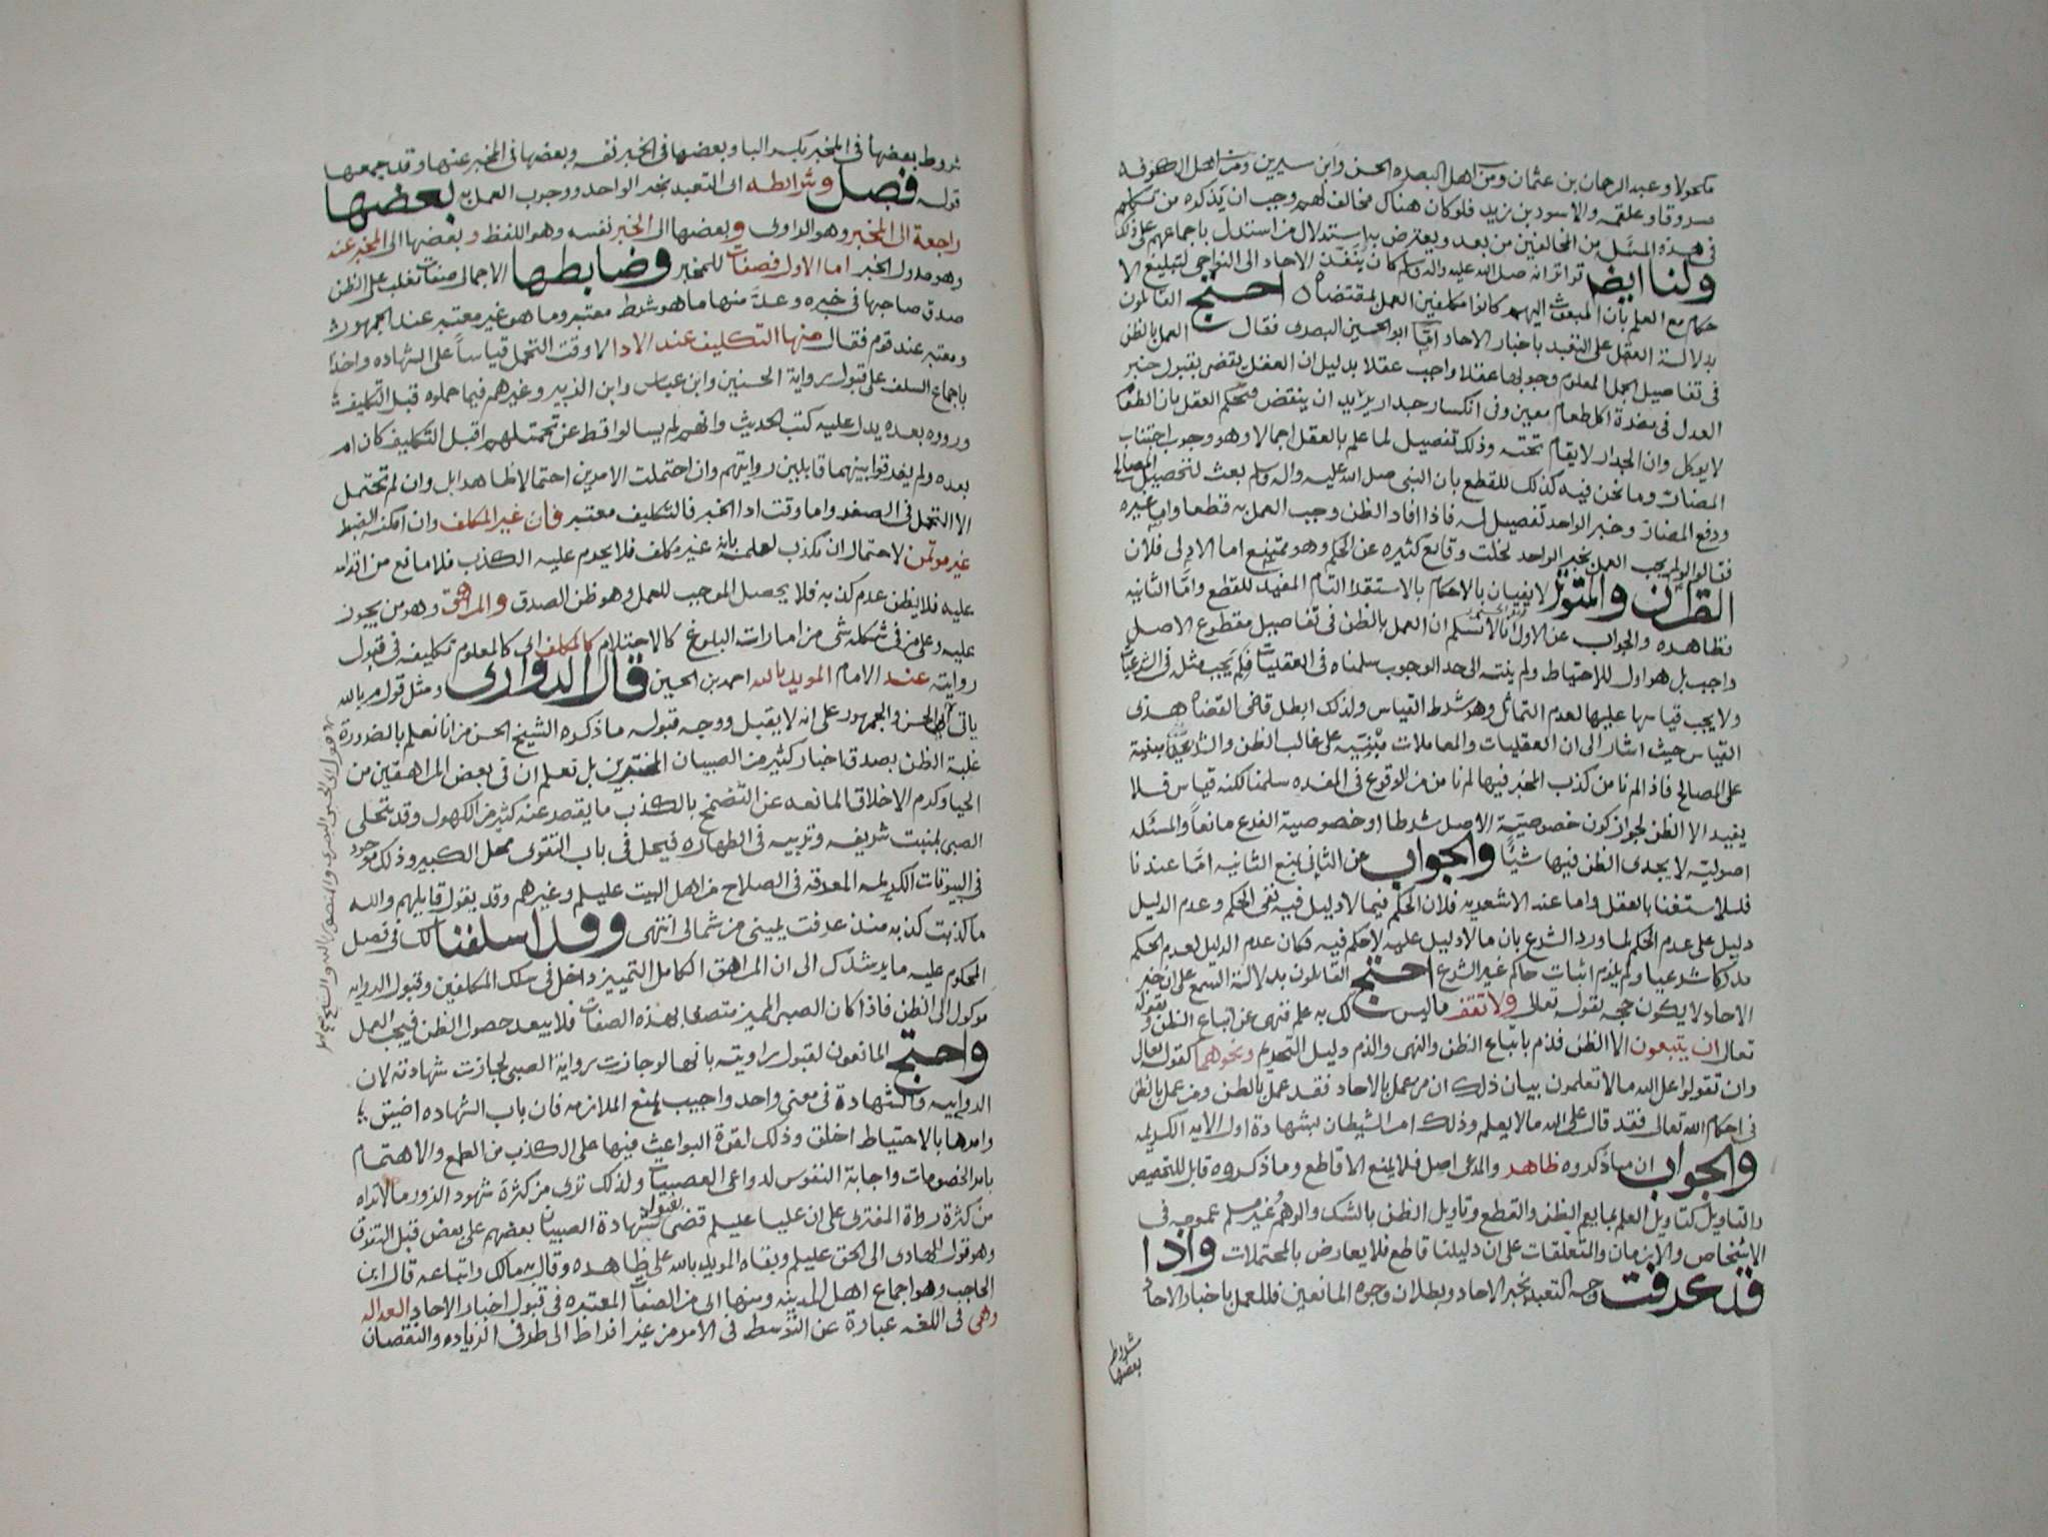 مكحولا وعبد الرحمان بن عثمان ومن اهل البصره الحسن وابن سيرين ومن اهل الكوفه
مسروقا وعلقمه والاسود بن يزيد فلو كان هناك مخالف لهم وجب ان يذكره من تكلم
في هذه المسئله من المخالفين من بعد ويعترض به استدلال من استدل باجماعهم على ذلك
ولنا ايضا تواتر انه صلى الله عليه واله وسلم كان ينفذ الاحاد الى النواحي لتبليغ الا
حكام مع العلم بان المبعوث اليهم كانوا مكلفين العمل بمقتضاه احتج القائلون
بدلالة العقل على التعبد باخبار الاحاد اما ابو الحسين البصري فقال العمل بالظن
في تفاصيل الجمل المعلوم وجوبها عقلا واجب عقلا بدليل ان العقل يقضي بقبول خبر
العدل في مضرة اكل طعام معين وفي انكسار جدار يريد ان ينقض فيحكم العقل بان الطعام
لا يوكل وان الجدار لا يقام تحته وذلك تفصيل لما علم بالعقل اجمالا وهو وجوب اجتناب
المضار وما نحن فيه كذلك للقطع بان النبي صلى الله عليه واله وسلم بعث لتحصيل المصالح
ودفع المضار وخبر الواحد تفصيل له فاذا افاد الظن وجب العمل به قطعا واما غيره
فقالوا لو لم يجب العمل بخبر الواحد لخلت وقايع كثيره عن الحكم وهو ممتنع اما الاولى فلان
القران والمتواتر لا يفيان بالاحكام بالاستقراء التام المفيد للقطع واما الثانيه
فظاهره والجواب عن الاول انا لا نسلم ان العمل بالظن في تفاصيل مقطوع الاصل
واجب بل هو اولى للاحتياط ولم ينته الى حد الوجوب سلمناه في العقليات فلم يجب مثله في الشرعيات
ولا يجب قياسها عليها لعدم التماثل وهو شرط القياس ولذلك ابطل قاضي القضاه هذى
القياس حيث اشار الى ان العقليات والمعاملات مبنيه على غالب الظن والشرعيات مبنية
على المصالح فاذا لم نامن كذب المخبر فيها لم نامن من الوقوع في المفسده سلمنا لكنه قياس فلا
يفيد الا الظن لجواز كون خصوصية الاصل شرطا او خصوصية الفرع مانعا والمسئله
اصولية لا يجدي الظن فيها شيئا والجواب عن الثاني بمنع الثانيه اما عندنا
فللاستغنا بالعقل واما عند الاشعريه فلان الحكم فيما لا دليل فيه نفي الحكم وعدم الدليل
دليل على عدم الحكم لما ورد الشرع بان ما لا دليل عليه لا حكم فيه فكان عدم الدليل لعدم الحكم
مدركا شرعيا ولم يلزم اثبات حاكم غير الشرع احتج القائلون بدلالة السمع على ان خبر
الاحاد لا يكون حجه بقوله تعالى ولا تقف ما ليس لك به علم فنهى عن اتباع الظن وبقوله
تعالى ان يتبعون الا الظن فذم باتباع الظن والنهي والذم دليل التحريم ونحوهما كقوله تعالى
وان تقولوا على الله ما لا تعلمون بيان ذلك ان من عمل بالاحاد فقد عمل بالظن ومن عمل بالظن
في احكام الله تعالى فقد قال على الله ما لا يعلم وذلك امر الشيطان بشهادة اول الايه الكريمه
والجواب ان ما ذكروه ظاهر والمدعى اصل فلا يمنع الا قاطع وما ذكروه قابل للتخصيص
والتاويل كتاويل العلم بما يعم الظن والقطع وتاويل الظن بالشك والوهم غير مسلم عمومه في
الاشخاص والازمان والمتعلقات على ان دليلنا قاطع فلا يعارض بالمحتملات واذا
قد عرفت وجه التعبد بخبر الاحاد وبطلان وجوه المانعين فللعمل باخبار الاحاد
شروط
بعضها
شروط بعضها في المخبر بكسر البا وبعضها في الخبر نفسه وبعضها في المخبر عنها وقد جمعها
قوله فصل وشرائطه اى التعبد بخبر الواحد ووجوب العمل به بعضها
راجعة الى المخبر وهو الراوى وبعضها الى الخبر نفسه وهو اللفظ وبعضها الى المخبر عنه
وهو مدلول الخبر اما الاول فصفات للمخبر وضابطها الاجمالي صفات تغلب على الظن
صدق صاحبها في خبره وعد منها ما هو شرط معتبر وما هو غير معتبر عند الجمهور
ومعتبر عند قوم فقال منها التكليف عند الادا لا وقت التحمل قياسا على الشهاده واخذا
باجماع السلف على قبول رواية الحسنين وابن عباس وابن الزبير وغيرهم فيما حملوه قبل التكليف
ورووه بعده يدل عليه كتب الحديث وانهم لم يسالوا قط عن تحملهم اقبل التكليف كان ام
بعده ولم يفرقوا بينهما قابلين روايتهم وان احتملت الامرين احتمالا ظاهرا بل وان لم تحتمل
الا التحمل في الصغر واما وقت ادا الخبر فالتكليف معتبر فان غير المكلف وان امكنه الضبط
غير موتمن لاحتمال ان يكذب لعلمه بانه غير مكلف فلا يحرم عليه الكذب فلا مانع من اقدامه
عليه فلا يظن عدم كذبه فلا يحصل الموجب للعمل وهو ظن الصدق والمراهق وهو من يجوز
عليه وعلى من في شكله شي من امارات البلوغ كالاحتلام كالمكلف اى كالمعلوم تكليفه في قبول
روايته عند الامام المويد بالله احمد بن الحسين قال الدوارى ومثل قول م بالله
ياتي لابي الحسن والجمهور على انه لا يقبل ووجه قبوله ما ذكره الشيخ الحسن من انا نعلم بالضرورة
غلبة الظن بصدق اخبار كثير من الصبيان المختبرين بل نعلم ان في بعض المراهقين من
الحيا وكرم الاخلاق المانعه عن التضمخ بالكذب ما يقصر عنه كثير من الكهول وقد يتحلى
الصبي بمنبت شريفه وتربيه في الطهاره فيحل في باب التقوى محل الكبير وذلك موجود
في البيوتات الكريمه المعرقه في الصلاح من اهل البيت عليلم وغيرهم وقد يقول قايلهم والله
ما كذبت كذبه منذ عرفت يميني من شمالي انتهى وقد اسلفنا لك في فصل
المحكوم عليه ما يرشدك الى ان المراهق الكامل التمييز داخل في سلك المكلفين وقبول الروايه
موكول الى الظن فاذا كان الصبي المميز متصفا بهذه الصفات فلا يبعد حصول الظن فيجب العمل
واحتج المانعون لقبول راويته بانها لو جازت رواية الصبي لجازت شهادته لان
الروايه والشهادة في معنى واحد واجيب بمنع الملازمه فان باب الشهاده اضيق
وامرها بالاحتياط اخلق وذلك لقوة البواعث فيها على الكذب من الطمع والاهتمام
بامر الخصومات واجابة النفوس لدواعي العصبيات ولذلك ترى من كثرة شهود الزور ما لا تراه
من كثرة رواة المفترى على ان عليا عليلم قضى بقبول شهادة الصبيان بعضهم على بعض قبل التفرق
وهو قول الهادى الى الحق عليلم وبقاه المويد بالله على ظاهره وقال به مالك واتباعه قال ابن
الحاجب وهو اجماع اهل المدينه ومنها اى من الصفات المعتبره في قبول اخبار الاحاد العداله
وهي في اللغه عبارة عن التوسط في الامر من غير افراط الى طرفي الزياده والنقصان